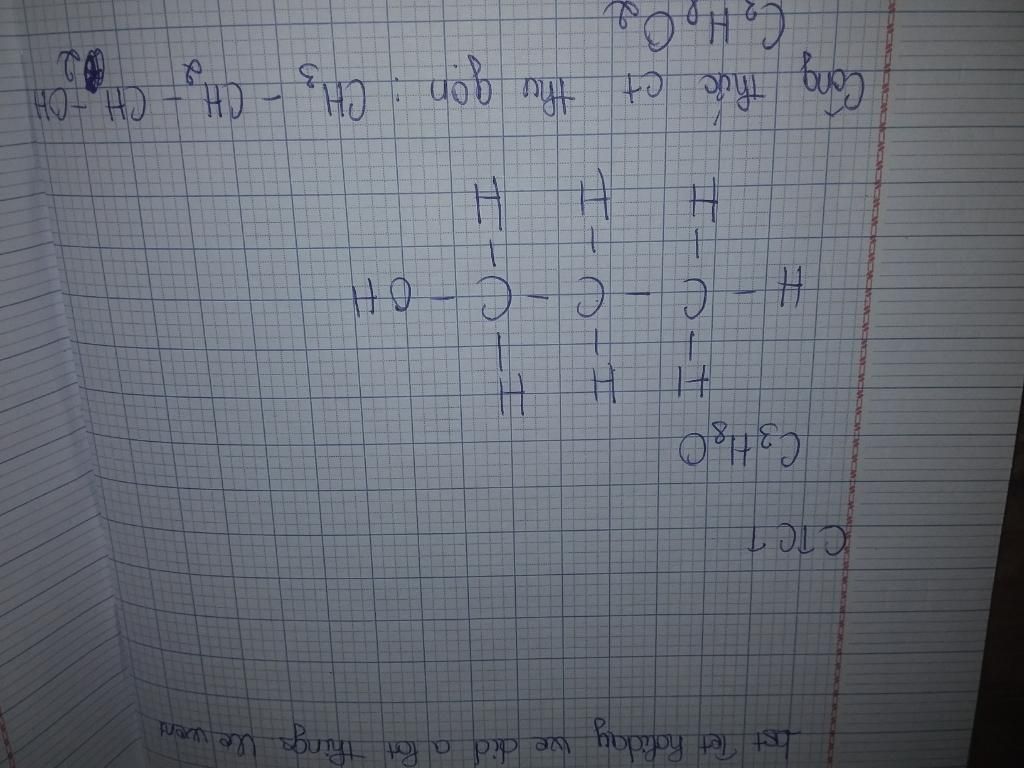 Last Tet holiday we did a lot things. We went
CTCT
C3H8O
H H H
| | |
H - C - C - C - OH
| | |
H H H
Công thức ct thu gọn : CH3 - CH2 - CH2 - OH
C2H8O2